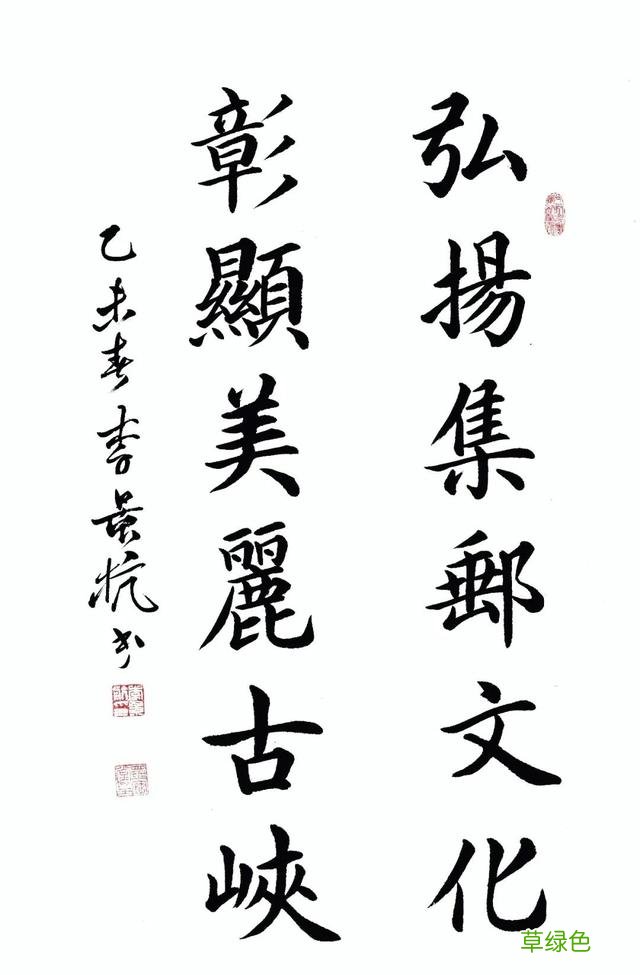 弘揚集郵文化
彰顯美麗古峽
乙未春李景杭书
草绿色